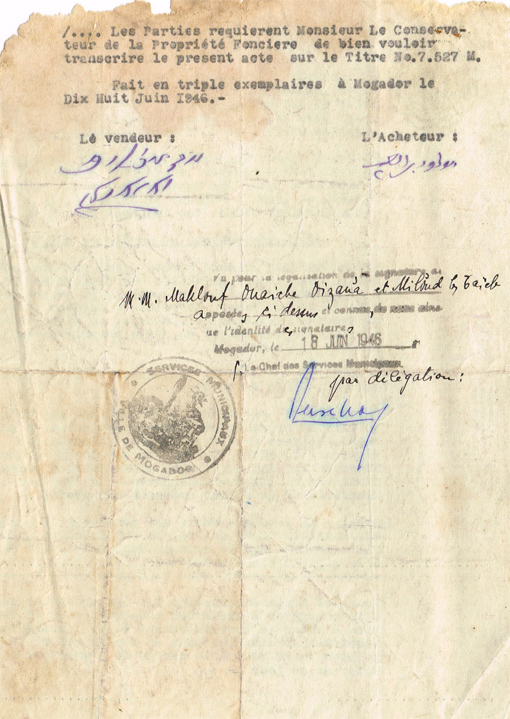 /.... Les Parties requierent Monsieur Le Conserva-
teur de la Propriété Fonciere de bien vouloir
transcrire le present acte sur le Titre No.7.527 M.
Fait en triple exemplaires à Mogador le
Dix Huit Juin I946.-
Lé vendeur :
L'Acheteur :
Vu pour la légalisation de la signature de
M.M. Makhlouf Ohaiche Dizaña et Miloud
apposées ci dessus et connue de nous ainsi
que l'identité de signataires
Mogador, le 18 JUIN 1946
Le Chef des Services Municipaux
par délégation :
SERVICES MUNICIPAUX
VILLE DE MOGADOR